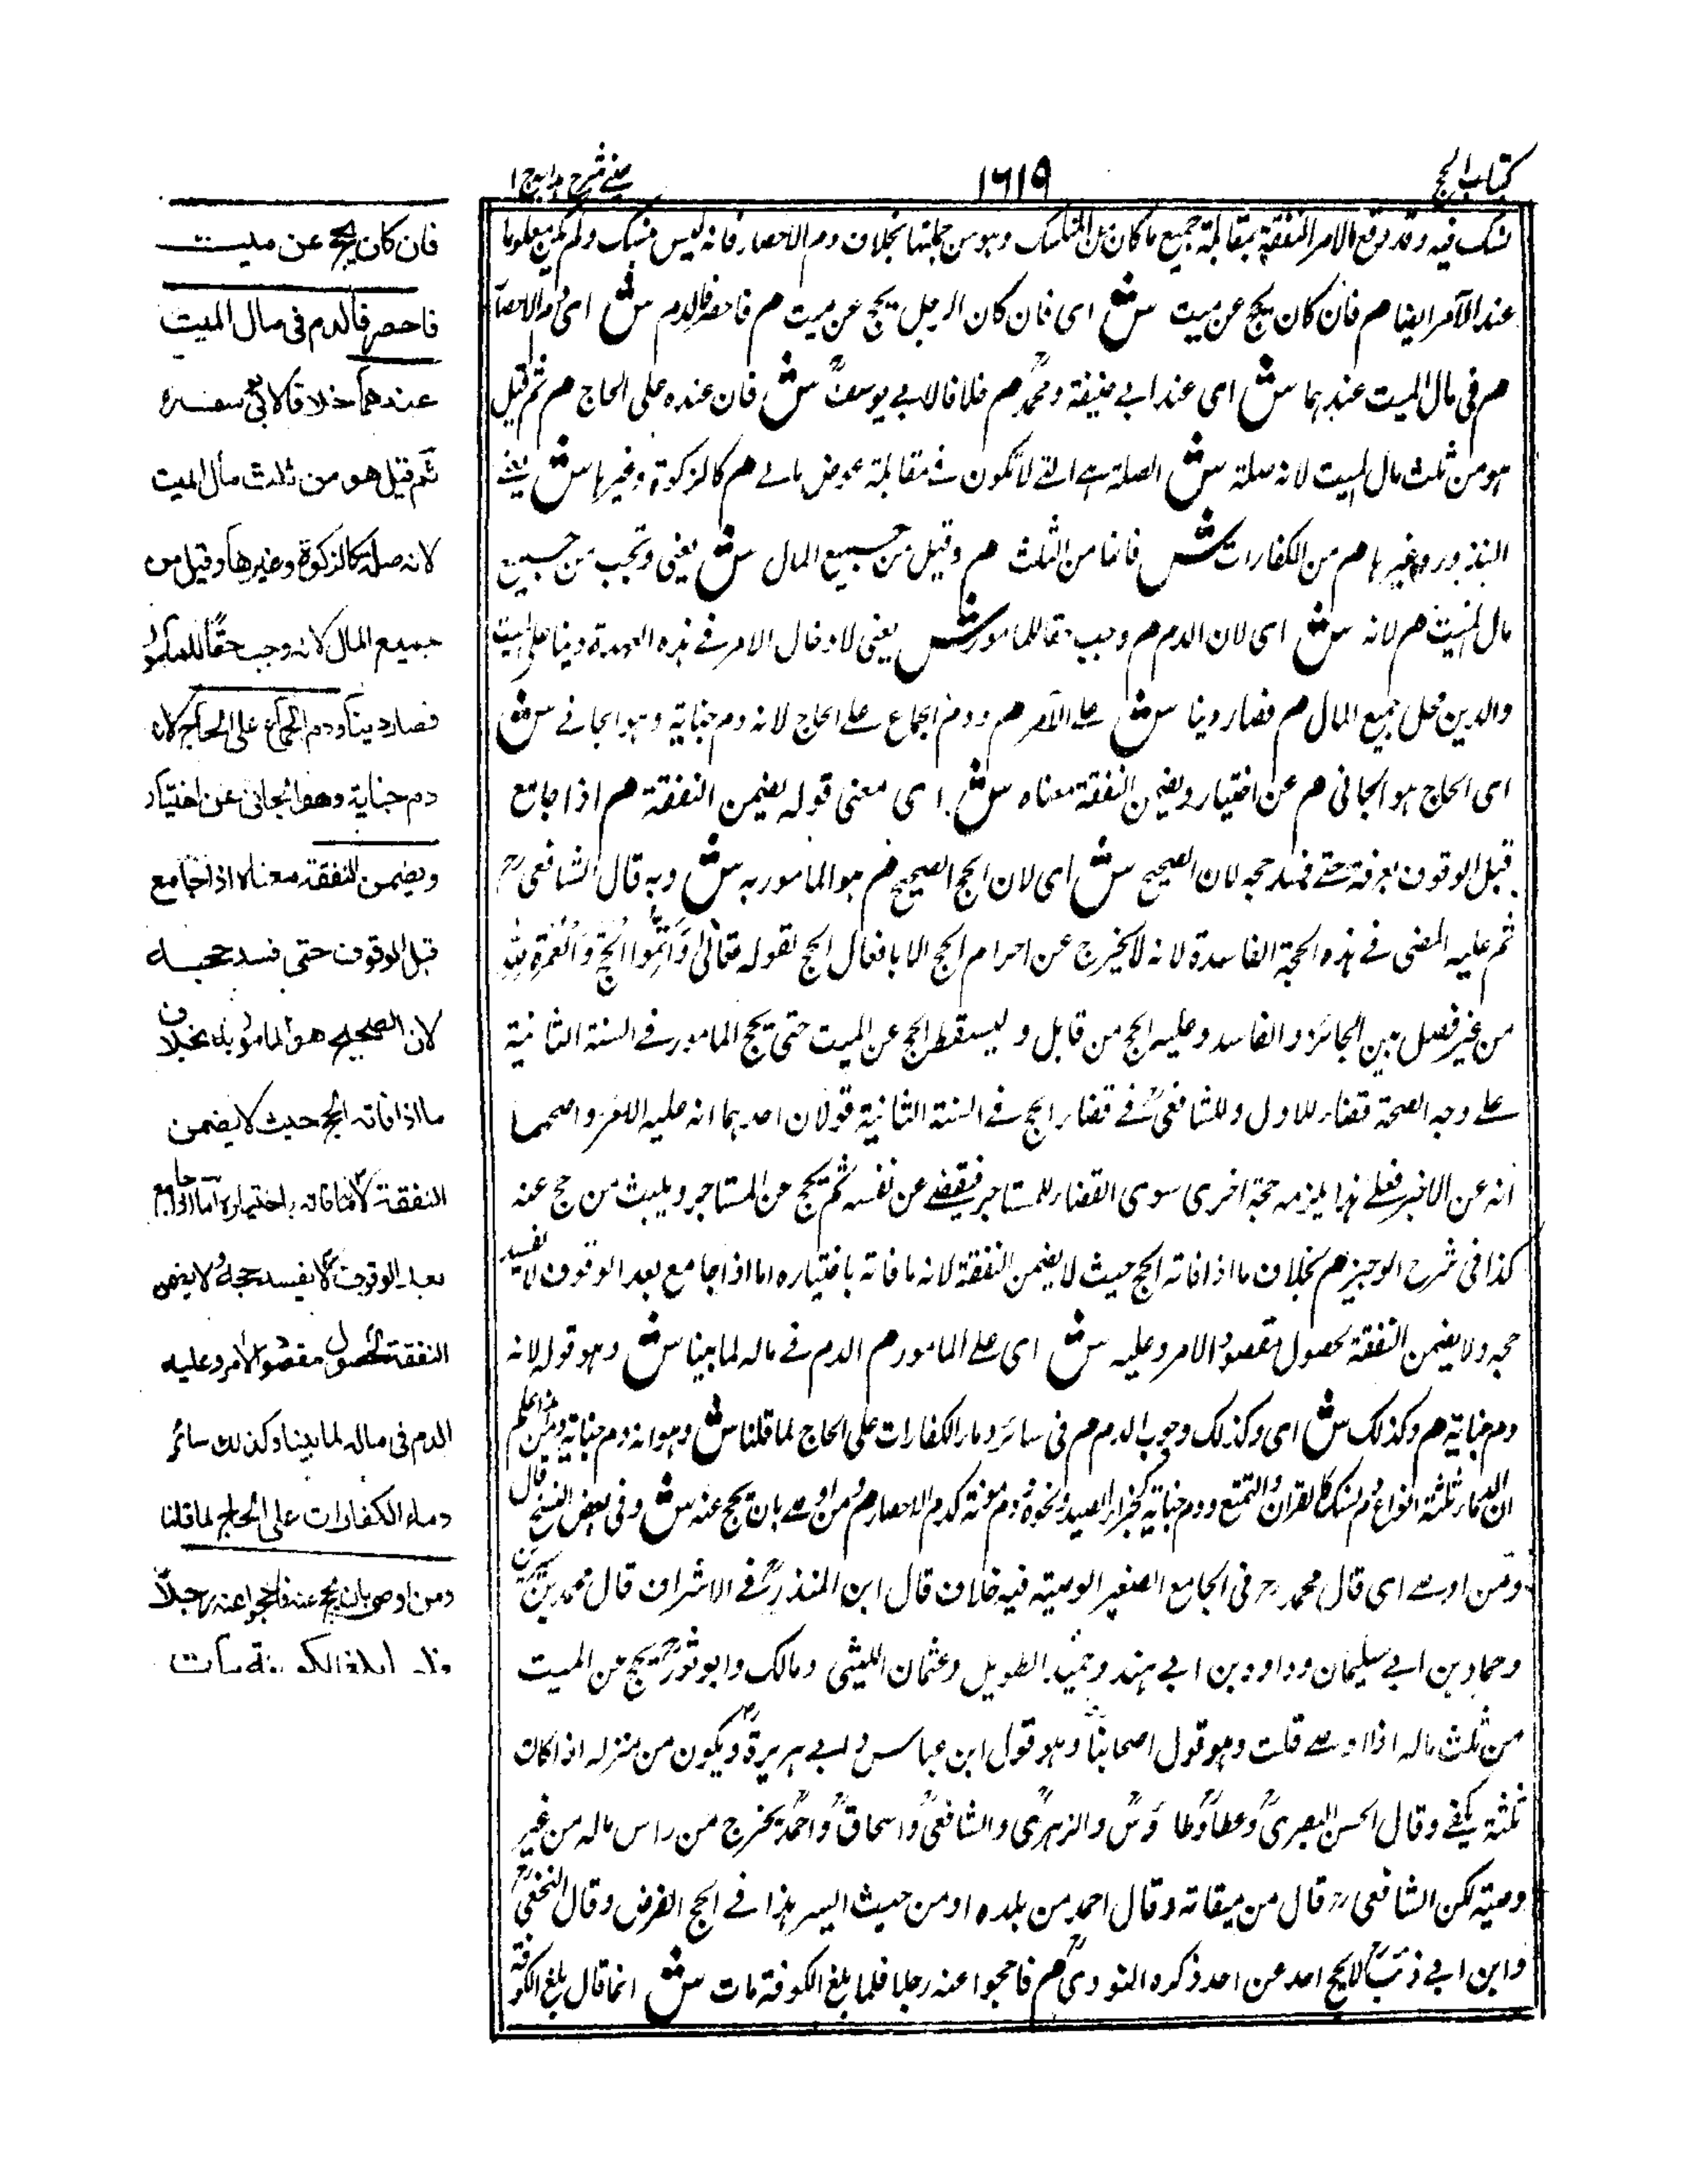 كتاب الحج
١٦١٩
عینی شرح هدایہ ج ١
نسك فيه وقد دفع الامر النفقة بمقابلة جميع ما كان من المناسك وهو من جملتها بخلاف دم الاحصار فانه ليس بنسك ولم يكن معلوما
عند الآمر ايضا هم فان كان يحج عن ميت ش اى فان كان الرجل يحج عن ميت هم فاحصر فالدم ش اى دم الاحصار
هم فى مال الميت عندهما ش اى عند ابي حنيفة ومحمد هم خلافا لابي يوسف ش فان عنده على الحاج هم ثم قيل
هو من ثلث مال الميت لانه صلة ش الصلة هي التي لا تكون في مقابلة عوض مالي هم كالزكوة وغيرها ش يعني
النذور وغيرها هم من الكفارات ش فانها من الثلث هم وقيل من جميع المال ش يعني وتجب من جميع
مال الميت هم لانه ش اى لان الدم هم وجب حقا للمامور ش يعني لادخال الامر في هذه العهدة دينا على الميت
والدين محل جميع المال هم فصار دينا ش على الآمر هم ودم الجماع على الحاج لانه دم جناية وهو الجاني ش
اى الحاج هو الجانى هم عن اختيار ويضمن النفقة معناه ش اى معنى قوله يضمن النفقة هم اذا جامع
قبل الوقوف بعرفة حتى فسد حجه لان الصحيح ش اى لان الحج الصحيح هم هو المامور به ش وبه قال الشافعى رح
ثم عليه المضى في هذه الحجة الفاسدة لانه لا يخرج عن احرام الحج الا بافعال الحج لقوله تعالى وَاَتِمُّوا الْحَجَّ وَالْعُمْرَةَ لِلّٰهِ
من غير فصل بين الجائز والفاسد وعليه الحج من قابل و ليسقط الحج عن الميت حتى يحج المامور في السنة الثانية
على وجه الصحة قضاء للاول وللشافعى في قضاء الحج في السنة الثانية قولان احدهما انه عليه الامر واصحهما
انه عن الاخير فعلى هذا يلزمه حجة اخرى سوى القضاء للمستاجر فيقضي عن نفسه ثم يحج عن المستاجر ويلبث من حج عنه
كذا فى شرح الوجيز هم بخلاف ما اذا فاته الحج حيث لا يضمن النفقة لانه ما فاته باختياره اما اذا جامع بعد الوقوف لا يفسد
حجه ولا يضمن النفقة لحصول مقصود الامر وعليه ش اى على المامور هم الدم في ماله لما بينا ش وهو قوله لانه
دم جناية هم وكذلك ش اى وكذلك وجوب الدم هم فى سائر دماء الكفارات على الحاج لما قلنا ش وهو انه دم جناية ومن هذا علم
ان الدماء ثلثة انواع دم نسك كالقران والتمتع ودم جناية كجزاء الصيد ونحوه ودم مؤنة كدم الاحصار هم ومن اوصى بان يحج عنه ش وفى بعض النسخ قال
ومن اوصى اى قال محمد رح فى الجامع الصغير الوصية فيه خلاف قال ابن المنذر في الاشراف قال محمد بن سيرين
وحماد بن ابي سليمان وداود بن ابي هند وحميد الطويل وعثمان الليثى ومالك وابو ثور يحج عن الميت
من ثلث ماله اذا اوصى قلت وهو قول اصحابنا وهو قول ابن عباس وابي هريرة ويكون من منزله اذا كان
ثلثه يكفي وقال الحسن البصرى وعطا وطاؤس والزهرى والشافعى واسحاق واحمد يخرج من راس ماله من غير
وصية لكن الشافعى رح قال من ميقاته وقال احمد من بلده او من حيث ايسر هذا في الحج الفرض وقال النخعى
وابن ابي ذئب لا يحج احد عن احد ذكره النووى هم فاحجوا عنه رجلا فلما بلغ الكوفة مات ش انما قال بلغ الكوفة
فان كان يحج عن ميت
فاحصر فالدم فى مال الميت
عندهما خلافا لابى يوسف
ثم قيل هو من ثلث مال الميت
لانه صلة كالزكوة وغيرها وقيل من
جميع المال لانه وجب حقا للمامور
فصار دينا ودم الجماع على الحاج لانه
دم جناية وهو الجانى عن اختيار
ويضمن النفقة معناه اذا جامع
قبل الوقوف حتى فسد حجه
لان الصحيح هو المامور به بخلاف
ما اذا فاته الحج حيث لا يضمن
النفقة لانه ما فاته باختياره اما اذا جامع
بعد الوقوف لا يفسد حجه ولا يضمن
النفقة لحصول مقصود الامر وعليه
الدم فى ماله لما بينا وكذلك سائر
دماء الكفارات على الحاج لما قلنا
ومن اوصى بان يحج عنه فاحجوا عنه رجلا
فلما بلغ الكوفة مات